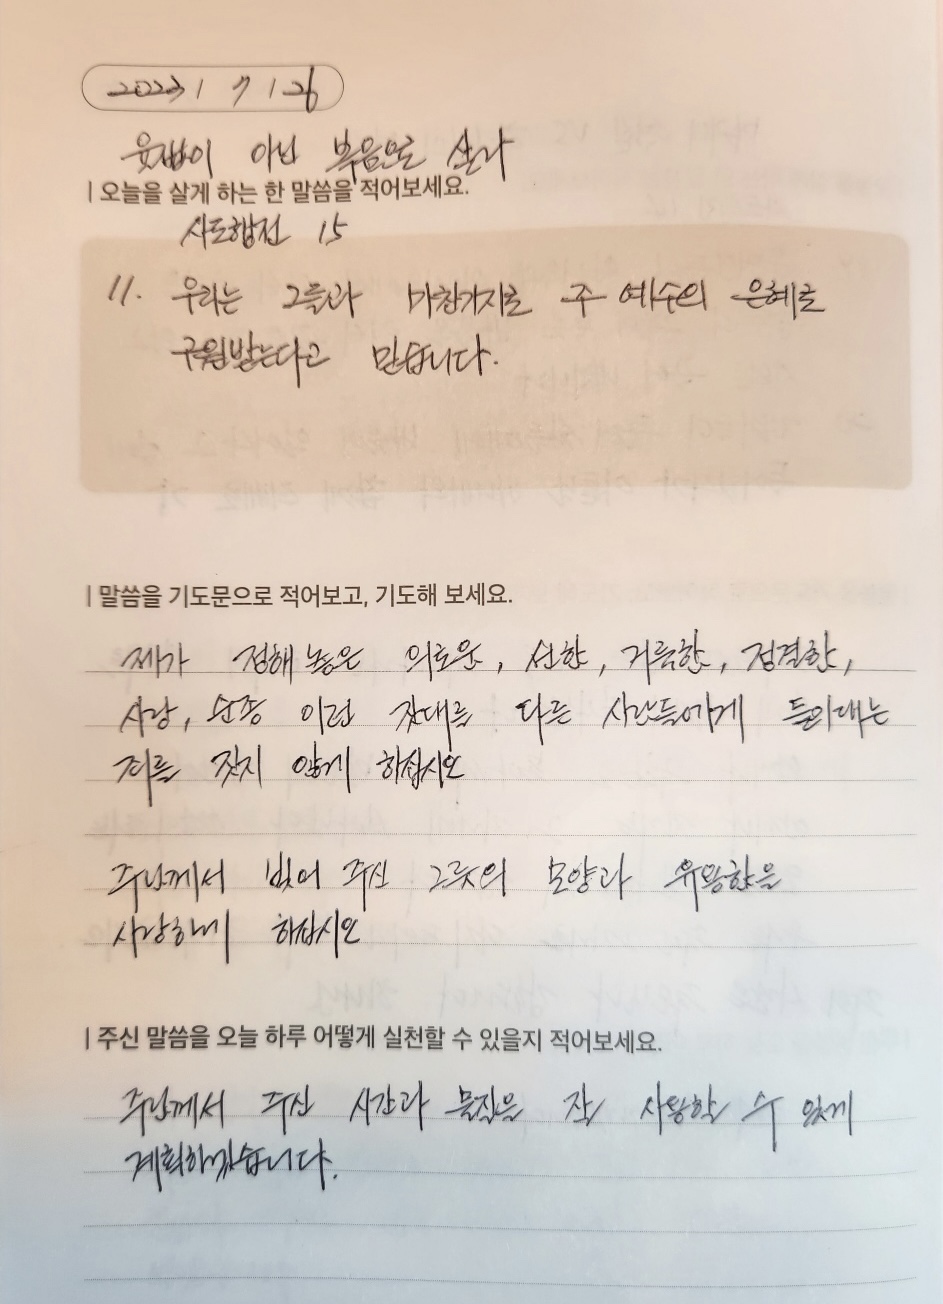 2023 / 7 / 26
율법이 아닌 복음으로 산다
| 오늘을 살게 하는 한 말씀을 적어보세요.
사도행전 15
11. 우리는 그들과 마찬가지로 주 예수의 은혜로
구원받는다고 믿습니다.
| 말씀을 기도문으로 적어보고, 기도해 보세요.
제가 정해 놓은 의로운, 선한, 거룩한, 정결한,
사랑, 순종 이런 잣대를 다른 사람들에게 들이대는
죄를 짓지 않게 하십시오
주님께서 빚어 주신 그릇의 모양과 유용함을
사랑하게 하십시오
| 주신 말씀을 오늘 하루 어떻게 실천할 수 있을지 적어보세요.
주님께서 주신 시간과 물질을 잘 사용할 수 있게
계획하겠습니다.